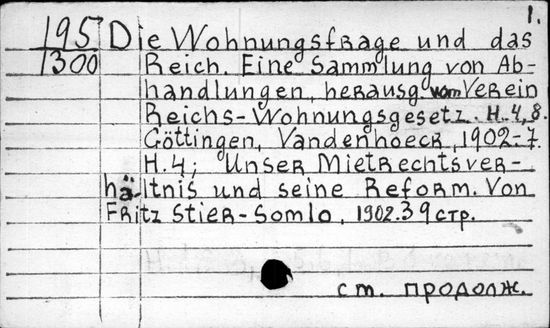 1.
195 Die Wohnungsfrage und das
1300 Reich. Eine Sammlung von Ab-
handlungen, herausg. vom Verein
Reichs-Wohnungsgesetz. H. 4, 8.
Göttingen, Vandenhoeck, 1902-7.
H. 4; Unser Mietrechtsver-
hältnis und seine Reform. Von
Fritz Stier-Somlo, 1902. 39 стр.
см. продолж.